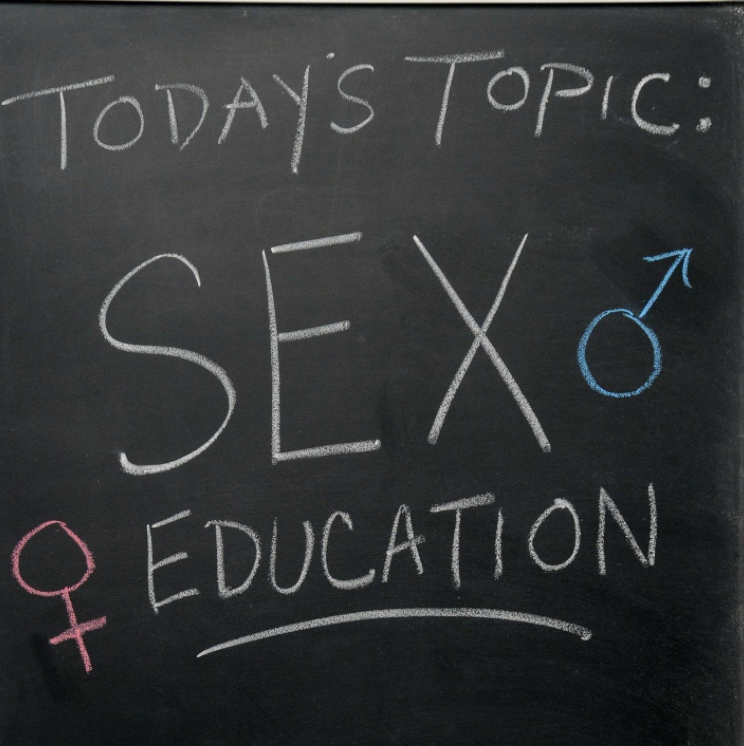 TODAY'S TOPIC:
SEX
EDUCATION